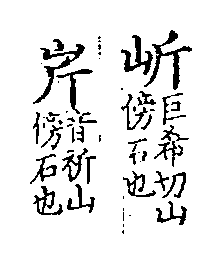 岓巨希切山
傍石也
岸音祈山
傍石也